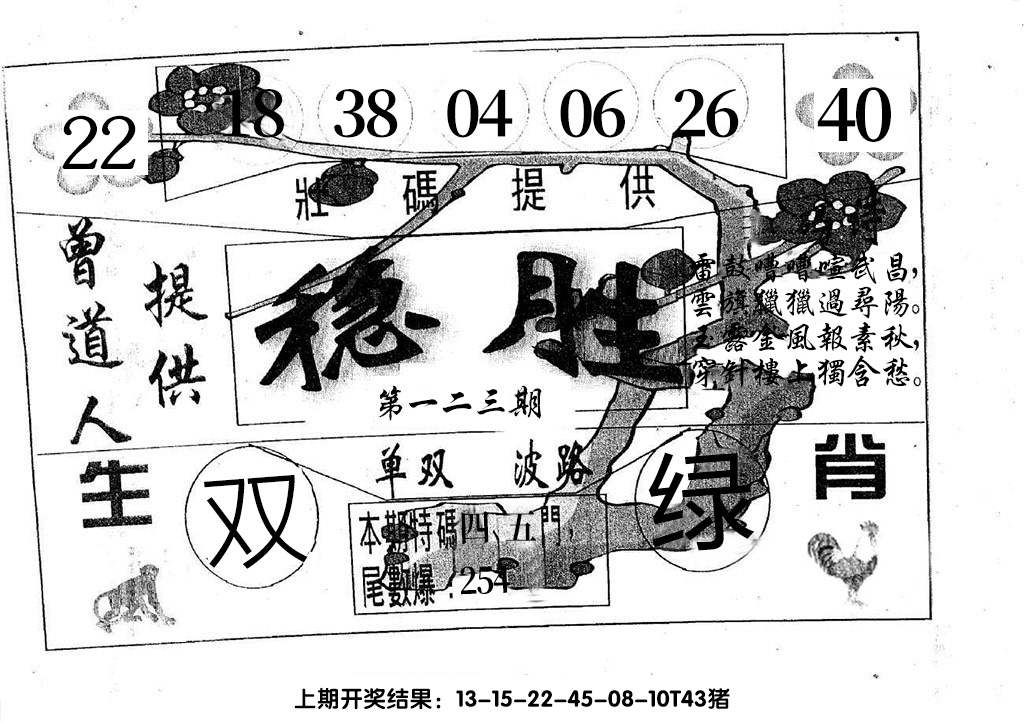 22 18 38 04 06 26 40
壯碼提供
曾道人
提供
稳胜
第一二三期
雷鼓嘈嘈喧武昌，
雲旗獵獵過尋陽。
玉露金風報素秋，
穿针樓上獨含愁。
单双 波路
生肖
双
绿
本期特碼四、五門，
尾數爆：254
上期开奖结果：13-15-22-45-08-10T43猪